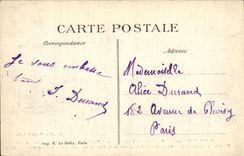 CARTE POSTALE
Correspondance
Adresse
Je vous embrasse
tous
J. Durand
Mademoiselle
Alice Durand
162 Avenue de Choisy
Paris
Imp. E. Le Deley, Paris